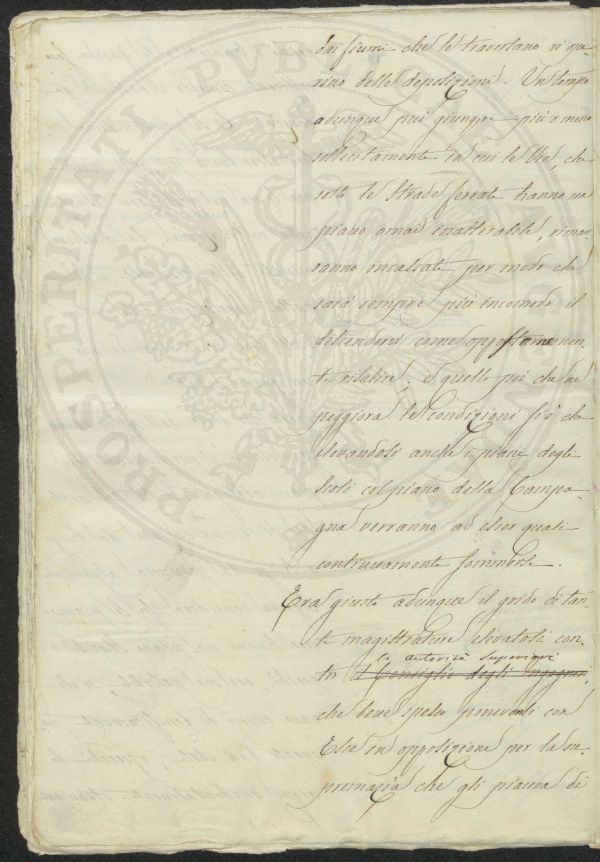 dai fiumi che le traversano vi ope-
rino delle deposizioni. Un tempo
adunque può giungere più o meno
sollecitamente in cui le Vie, che
sotto le Strade ferrate hanno un
piano omai inalterabile, rimar-
ranno incassate per modo che
sarà sempre più incomodo il
discendervi come opportunemen-
te risalire; e quello poi che ne
peggiora le condizioni si è che
elevandosi anche i piani degli
scoli col piano della Campa-
gna verranno ad esser quasi
continuamente sommerse.
Era giusto adunque il grido di tan-
te magistrature elevatosi con-
le autorità superiori
tro il Consiglio degli ingegneri,
che bene spesso ponevansi con
Esse in opposizione per la su-
premazia che gli piaceva di
PROSPERITATI PVBLIC